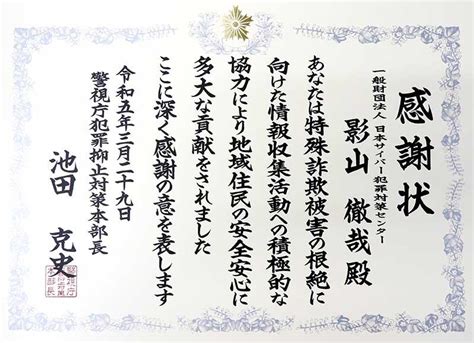 感謝状
一般財団法人 日本サイバー犯罪対策センター
影山 徹哉 殿
あなたは特殊詐欺被害の根絶に
向けた情報収集活動への積極的な
協力により地域住民の安全安心に
多大な貢献をされました
ここに深く感謝の意を表します
令和五年三月二十九日
警視庁犯罪抑止対策本部長
池田 克史